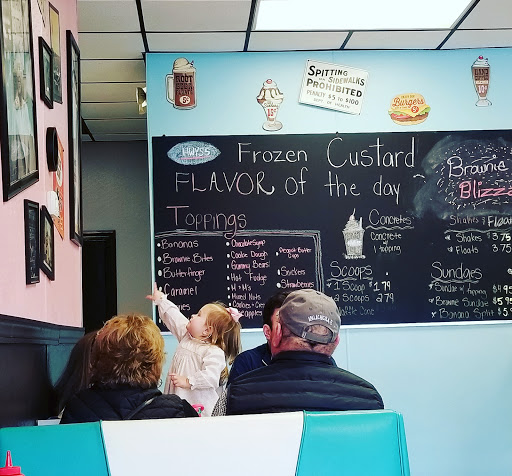 ROOT
BEER
5¢
10¢
SPITTING
ON SIDEWALKS
PROHIBITED
PENALTY $5 TO $100
DEPT. OF HEALTH
BURGERS
10¢
HWY 55
Frozen Custard
FLAVOR of the day
Toppings
Bananas
Brownie Bites
Butterfinger
Caramel
Chocolate Syrup
Cookie Dough
Gummy Bears
Hot Fudge
M + M's
Mixed Nuts
Peanut Butter
Cups
Snickers
Strawberries
Concretes
Concrete
w/ topping
Scoops
1 Scoop $1.79
2 Scoops 2.79
Cone
Brownie
Shakes + Float
Shakes $3.75
Floats 3.75
Sundaes
Sundae w/ topping $4.95
Brownie Sundae $5.9
Banana Split $5.9